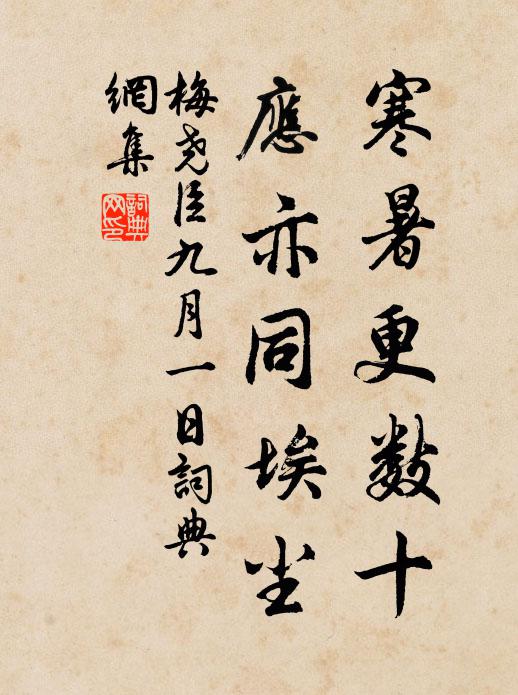 寒暑更數十
應亦同埃尘
梅堯臣九月一日詞典
網集
詞典
网印